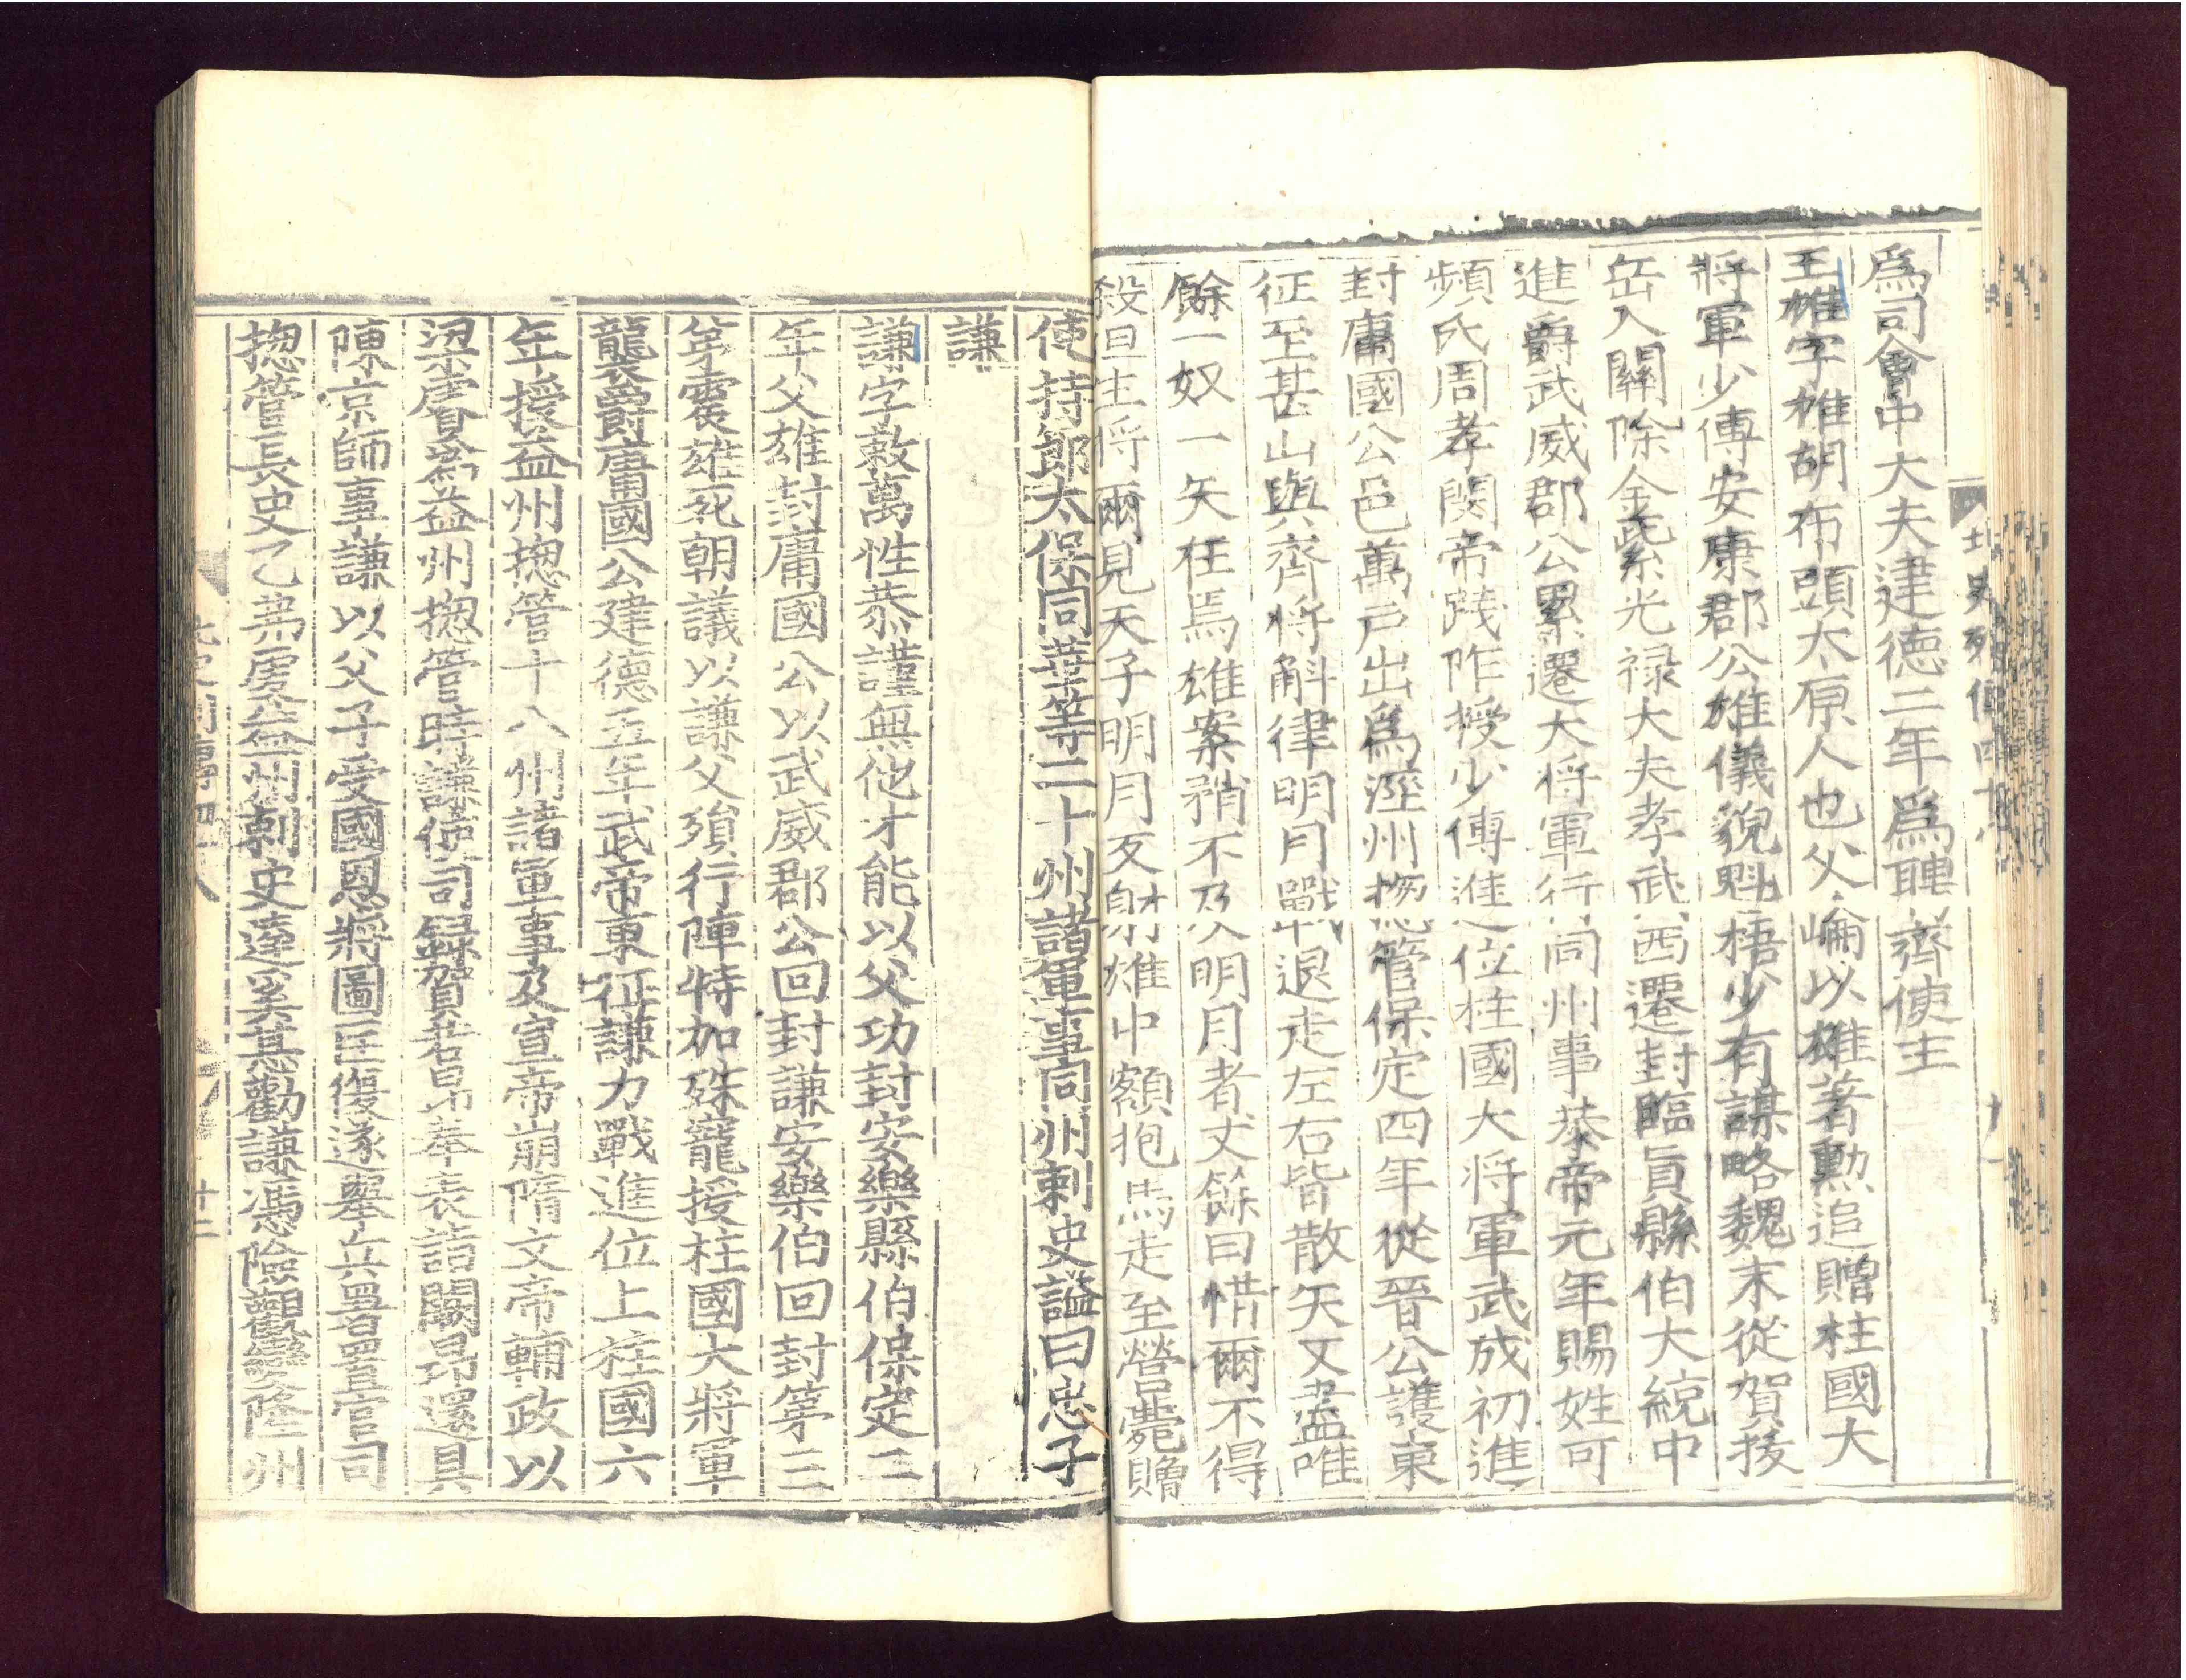 爲司會中大夫建德二年爲聘齊使主
王雄字雄胡布頭太原人也父崘以雄著勲追贈柱國大
將軍少傅安康郡公雄儀貌魁梧少有謀略魏末從賀拔
岳入關除金紫光禄大夫孝武西遷封臨貞縣伯大統中
進爵武威郡公累遷大将軍行同州事恭帝元年賜姓可
頻氏周孝閔帝踐阼授少傅進位柱國大将軍武成初進
封庸國公邑萬戶出爲涇州揔管保定四年從晉公護東
征至芒山與齊将斛律明月戰退走左右皆散矢又盡唯
餘一奴一矢在焉雄案矟不及明月者丈餘曰惜爾不得
殺且生将爾見天子明月反射雄中額抱馬走至營薨贈
使持節太保同華等二十州諸軍事同州刺史謚曰忠子
謙
謙字敕萬性恭謹無他才能以父功封安樂縣伯保定二
年父雄封庸國公以武威郡公回封謙安樂伯回封第三
弟震雄死朝議以謙父殞行陣特加殊寵授柱國大將軍
襲爵庸國公建德五年武帝東征謙力戰進位上柱國六
年授益州揔管十八州諸軍事及宣帝崩隋文帝輔政以
梁睿爲益州揔管時謙使司録賀若昂奉表詣闕昂還具
陳京師事謙以父子受國恩將圖匡復遂舉兵署置官司
揔管長史乙弗虔益州刺史達奚惎勸謙憑險觀變隆州
北史列傳四十八
十一
北史列傳四十八
十二